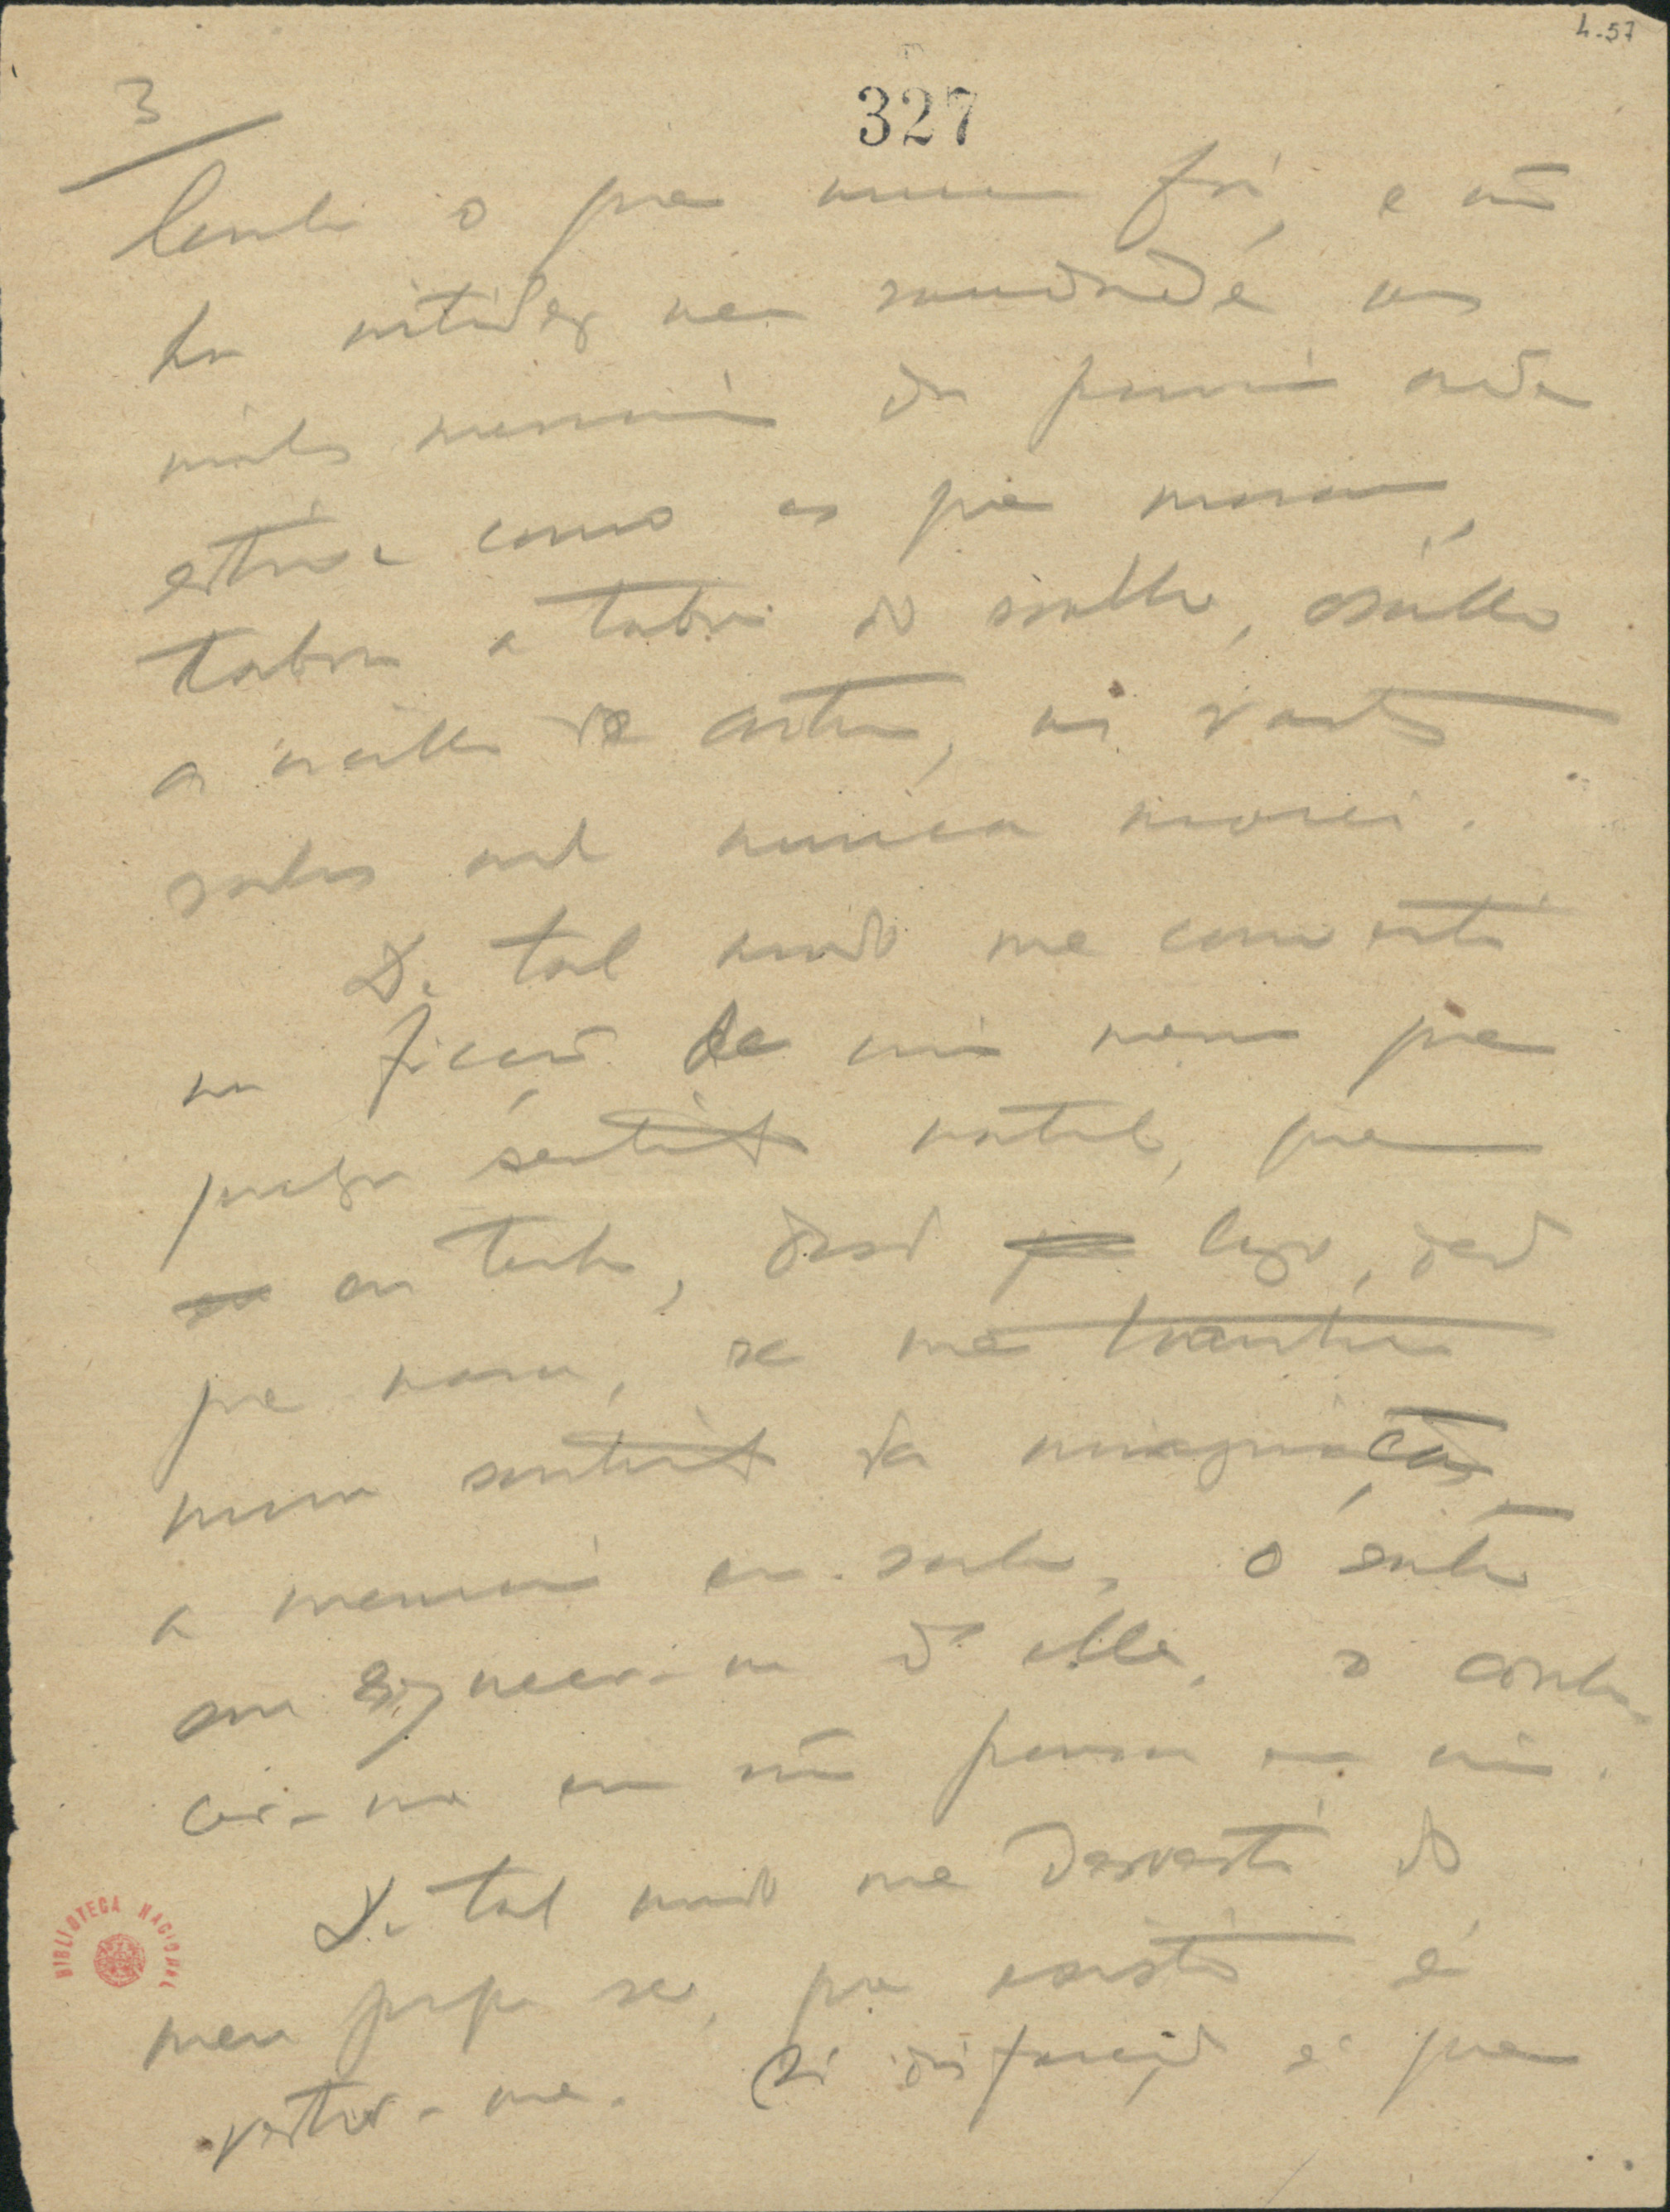 4-57
327
3
Lembro o que nunca foi, e não
ha nitidez nem saudade nas
minhas memorias do passado onde
estive como as que moram,
tabua a tabua do soalho, soalho
a soalho de outrora, nas vastas
salas onde nunca morei.
De tal modo me converti
na ficção de mim mesmo que
qualquer sentimento natural, que
eu tenho, desde logo, desde
que nasce, se me transtorna
num sentimento da imaginação
a memoria em sonho, o sonho
em esquecer-me d'elle, o conhe
cer-me em não pensar em mim.
De tal modo me desvesti do
meu proprio ser, que existir é
vestir-me. Só disfarçado é que
BIBLIOTECA NACIONAL